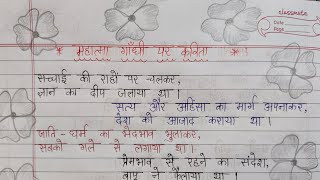 classmate
Date
Page
* महात्मा गाँधी पर कविता *
सच्चाई की राहों पर चलकर,
ज्ञान का दीप जलाया था।
सत्य और अहिंसा का मार्ग अपनाकर,
देश को आजाद कराया था।
जाति-धर्म का भेदभाव भूलाकर,
सबको गले से लगाया था।
प्रेमभाव से रहने का संदेश,
बापू ने फैलाया था।